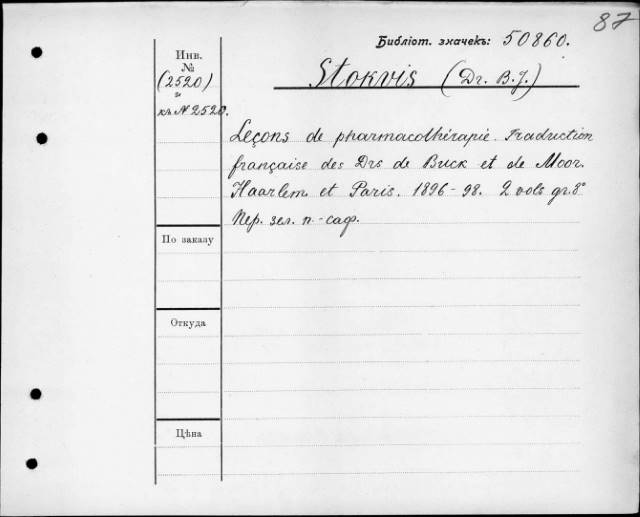 87
Библiот. значекъ: 50860.
Инв.
№
(2520)
2
къ № 2520.
Stokvis (Dr. B.J.)
Leçons de pharmacothérapie. Traduction
française des Drs de Buck et de Moor.
Haarlem et Paris. 1896-98. 2 vols gr. 8°
Пер. зел. п.-саф.
По заказу
Откуда
Цѣна